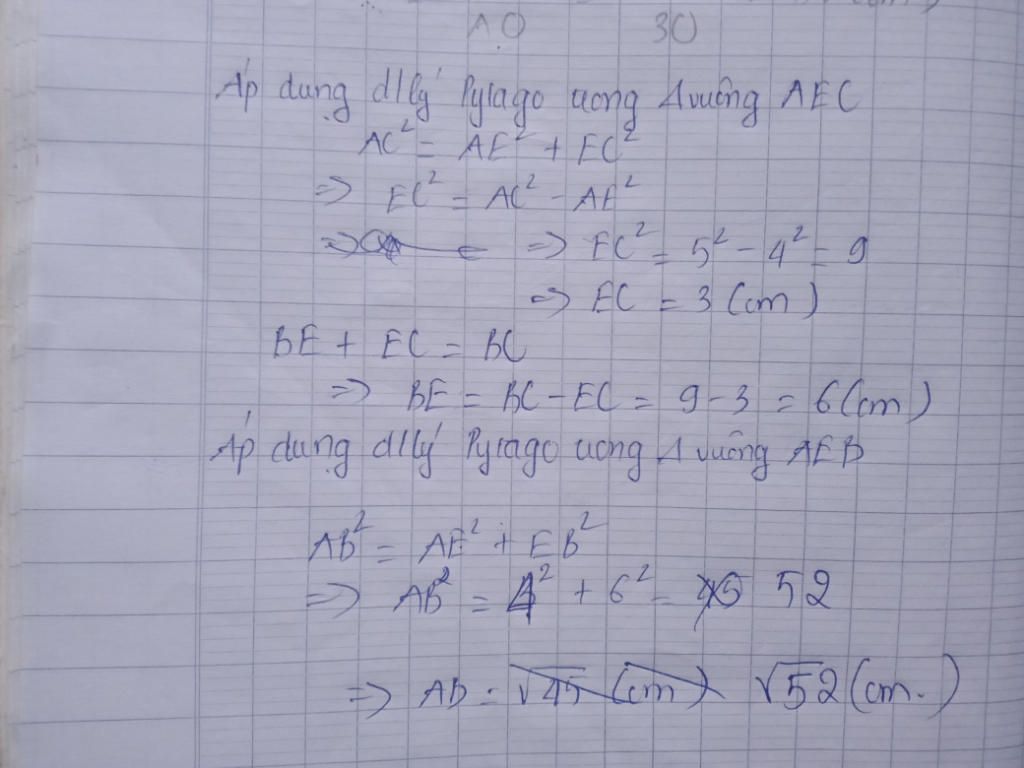 AO 30
Áp dụng đ/lý Pytago trong Δ vuông AEC
AC² = AE² + EC²
=> EC² = AC² - AE²
=> EC² = 5² - 4² = 9
=> EC = 3 (cm)
BE + EC = BC
=> BE = BC - EC = 9 - 3 = 6 (cm)
Áp dụng đ/lý Pytago trong Δ vuông AEB
AB² = AE² + EB²
=> AB² = 4² + 6² = 52
=> AB = √45 (cm) √52 (cm.)